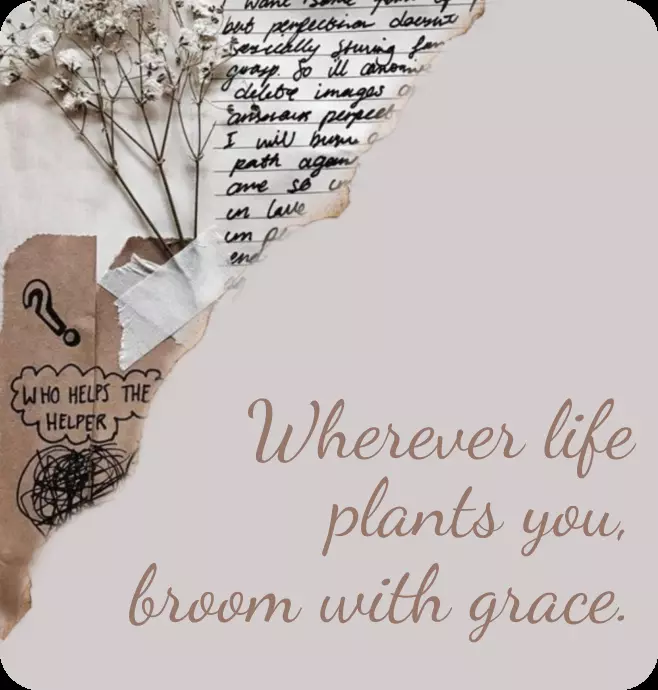 I want some
but perfection doesnt
grasp. So ill
delete images
perfect
I will burn
path again
are so
in love
in
end
?
WHO HELPS THE
HELPER
Wherever life
plants you,
broom with grace.